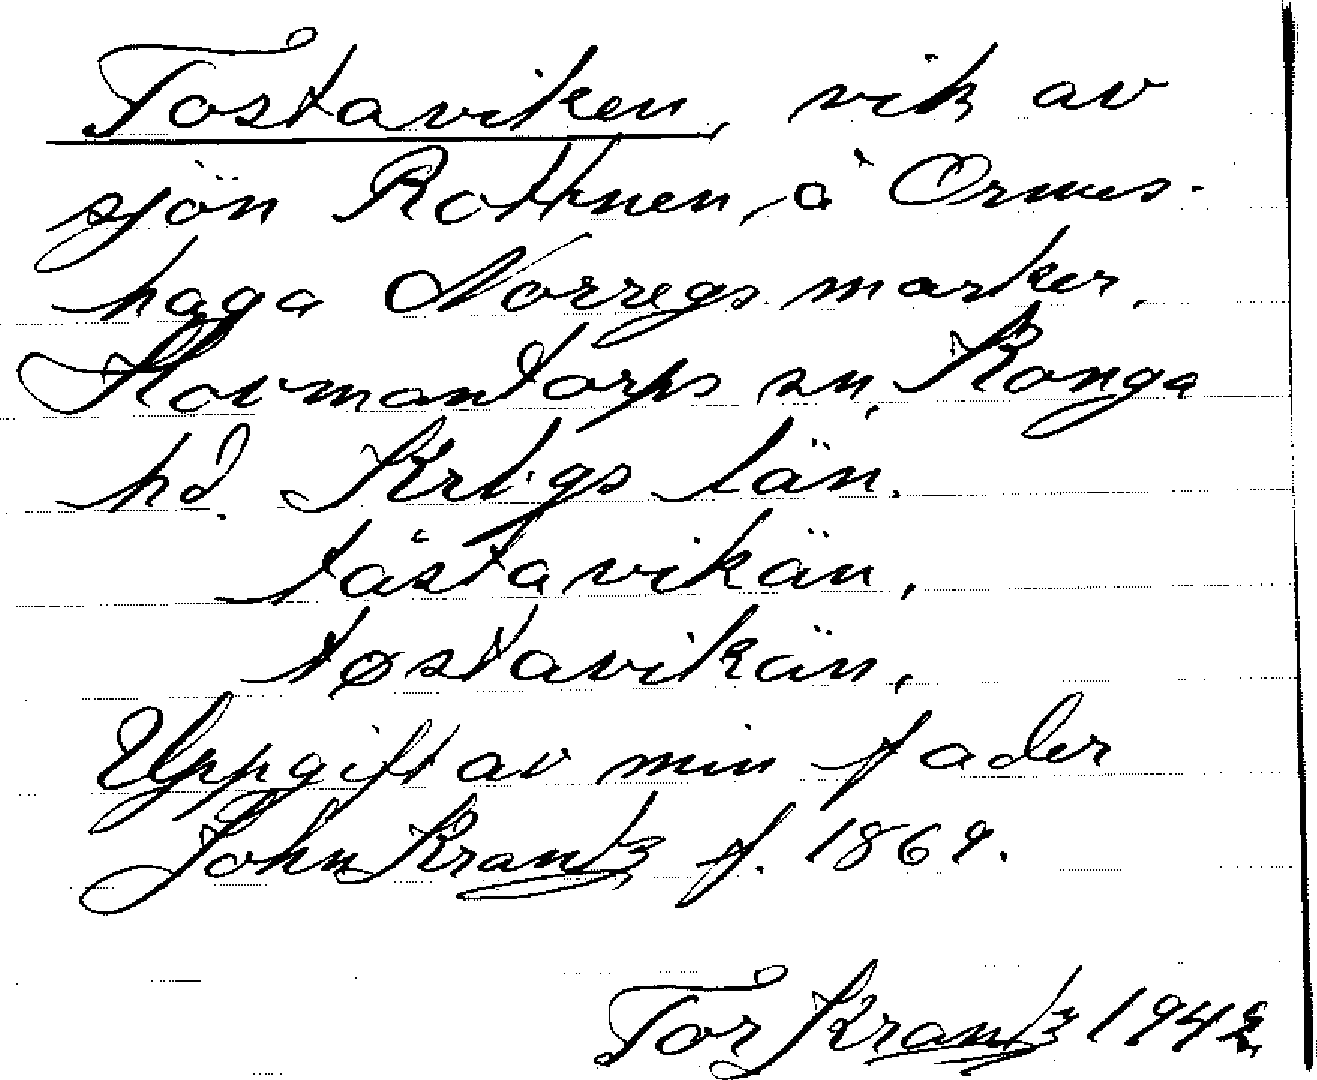 Tostaviken, vik av
sjön Rottnen, å Ormes-
haga Norregs marker,
Hovmantorps sn, Konga
hd. Krbgs län.
tåstavikän,
tøstavikän,
Uppgift av min fader
John Krantz f. 1869.
Tor Krantz 1942